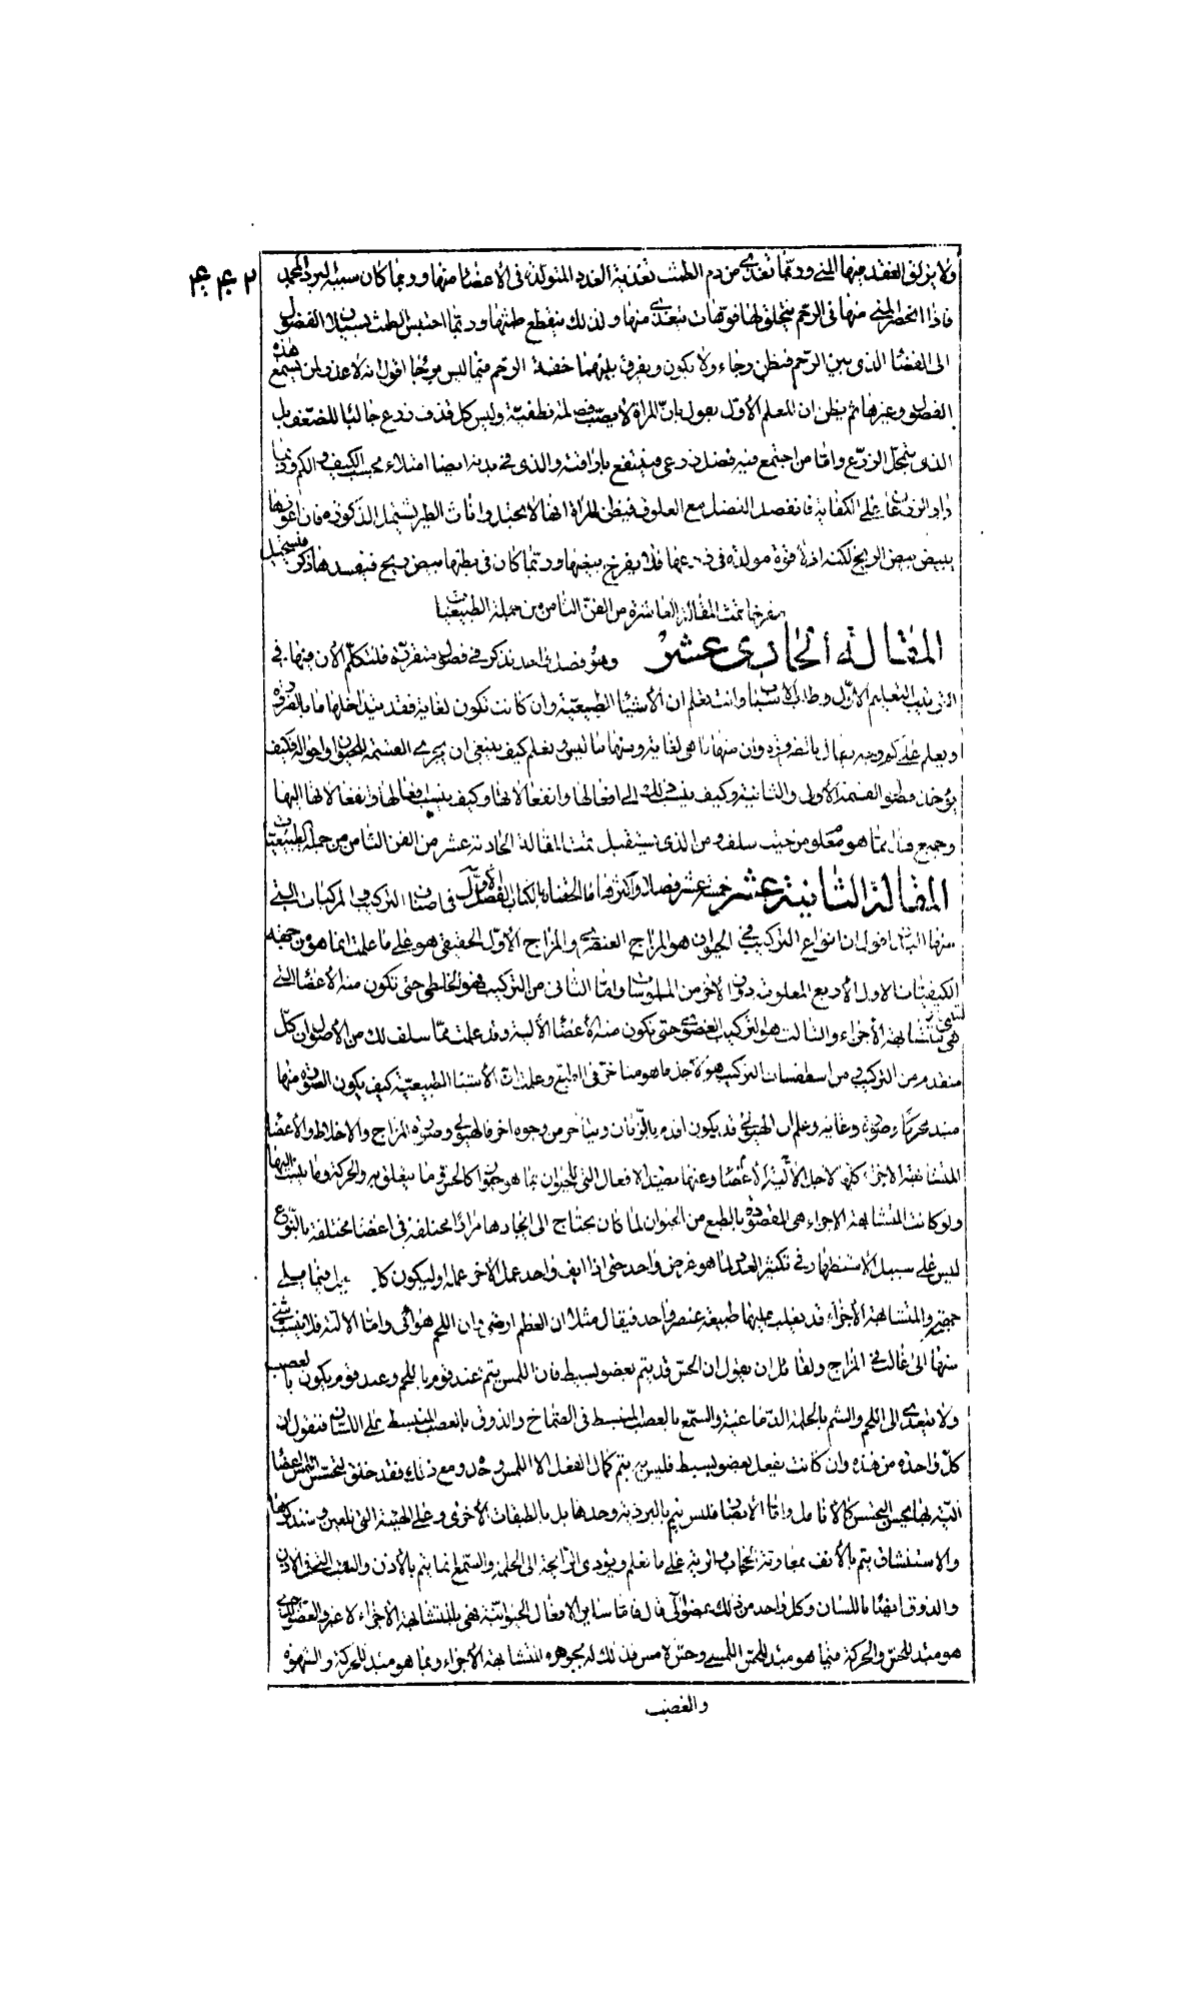 ۴۴۲
ولا يزلق العقد منها المنى وربما تغذى من دم الطمث تغذية الغدد المتولدة فى الأعضاء منها وربما كان سببه البرد المجمد
فاذا انحصر المنى منها فى الرحم يتخلق لها فوهات يتغذى منها ولذلك ينقطع طمثها وربما احتبس الطمث بسيلان الفضول
الى الفضاء الذى بين الرحم فيظن رجاء ولا يكون ويفرق بينهما خفة الرحم فيما ليس مرجا اقول انه لا عذر لمن يسمع هذه
الفصول وغيرها ثم يظن ان المعلم الأول يقول بان المرأة لا يصب نطفية وليس كل قذف زرع جالبا للضعف بل
الذى يتحلل الزرع واما من اجتمع فيه فضل زرعى فينتفع باراقته والذى فى بدنه ايضا امتلاء بحسب الكيف والكم وربما
زاد الزرعان على الكفاية فانفصل الفضل مع العلوق فيظن المرأة انها لا تحبل واناث الطير تشتمل الذكورة فان اعوزها
يبيض بيض الريح لكنه اذ لا قوة مولدة فى زرعها فلا يفرخ بيضها وربما كان فى بطنها بيض ريح فيفسدها ذكر فيستحيل
مفرخا تمت المقالة العاشرة من الفن الثامن من جملة الطبيعيات
المقالة الحادى عشر وهو فصل واحد نذكر فى فصول متفرقة فلنتكلم الأن منها فى
الذى يليه التعليم الاول وطلب الاسباب وانت تعلم ان الأشياء الطبيعية وان كانت تكون لغاية فقد يتداخلها ما بالضرورة
ويعلم على كم وجه يقال بالضرورة وان منها ما هى لغاية ومنها ما ليس ويعلم كيف ينبغى ان يجرى القسمة للحيوان واحواله وكيف
يؤخذ القسمة الأولى والثانية وكيف ينسب ذلك الى افعالها وانفعالاتها وكيف ينسب افعالها وانفعالاتها اليها
وجميع هذا مما هو معلوم من حيث سلف ومن الذى يستقبل تمت المقالة الحادية عشر من الفن الثامن من جملة الطبيعيات
المقالة الثانية عشر خمسة عشر فصلا الفصل الاول فى اصناف التركيب المركبات التى
منها البدن اقول ان انواع التركيب فى الحيوان هو المزاج العنصرى والمزاج الأول الحقيقى هو على ما علمت انما هو من جهة
الكيفيات الاول الأربع المعلومة دون الأخر من الملموسات واما الثانى من التركيب فهو الخلطى حتى تكون منه الأعضاء التى
هى متشابهة الأجزاء والثالث هو التركيب العضوى حتى تكون منه الأعضاء الألية وقد علمت مما سلف لك من الأصول ان كل
متقدم من التركيب من اسطقسات التركيب هو لأجل ما هو متاخر فى الطبع وعلمت ان الأشياء الطبيعية كيف يكون الضرورة منها
مبدء محركا وصورة وغاية وعلم ان الهيولى قد يكون اقدم بالزمان ويتأخر من وجوه اخر فالهيولى وصورة المزاج والاخلاط والأعضاء
المتشابهة الأجزاء كلها لاجل الألية الأعضاء وعنها مصدر الافعال التى للحيوان بما هو حيوان كالحس وما يتعلق به والحركة وما ينسب اليها
ولو كانت المتشابهة الاجزاء هى المقصودة بالطبع من الحيوان لما كان يحتاج الى ايجادها مرارا مختلفة فى اعضاء مختلفة بالنوع
ليس على سبيل الاستظهار فى تكثير العدد لما هو غرض واحد حتى اذا ايف واحد عمل الأخر عمله او ليكون فيما يلى
والمتشابهة الأجزاء قد يغلب عليها طبيعة عنصر واحد فيقال مثلا ان العظم ارضى وان اللحم هوائى واما الالية فلا ينسب شئ
منها الى غالب فى المزاج ولقائل ان يقول ان الحس قد يتم بعضو بسيط فان اللمس يتم عند قوم باللحم وعند قوم يكون بالعصب
ولا يتعدى الى اللحم والشم بالحلمة الدماغية والسمع بالعصب المنبسط فى الصماخ والذوق بالعصب المنبسط على اللسان فنقول ان
كل واحدة من هذه وان كانت يفعل بعضو بسيط فليس يتم كمال الفعل الا اللمس وحده ومع ذلك فقد خلق لتحسس اللمس اعضاء
الية بها يحسن التحسس كالأنامل واما الأبصار فليس يتم بالبردية وحدها بل بالطبقات الأخرى وعلى الهيئة التى للعين وسنذكرها
والاستنشاق يتم بالأنف بمعاونة الحجاب والرية على ما نعلم ويؤدى الرائحة الى الحلمة والسمع انما يتم بالأذن والثقب التى الاذن
والذوق ايضا باللسان وكل واحد من ذلك عضو آلى قال فاما ساير الافعال الحيوانية فهى بالمتشابهة الأجزاء لا غير والعضو الذى
هو مبدء للحس والحركة فيما هو مبدء للحس اللمسى وحس لامس فذلك له بجوهره المتشابهة الأجزاء وبما هو مبدء للحركة والشهوة
والغضب